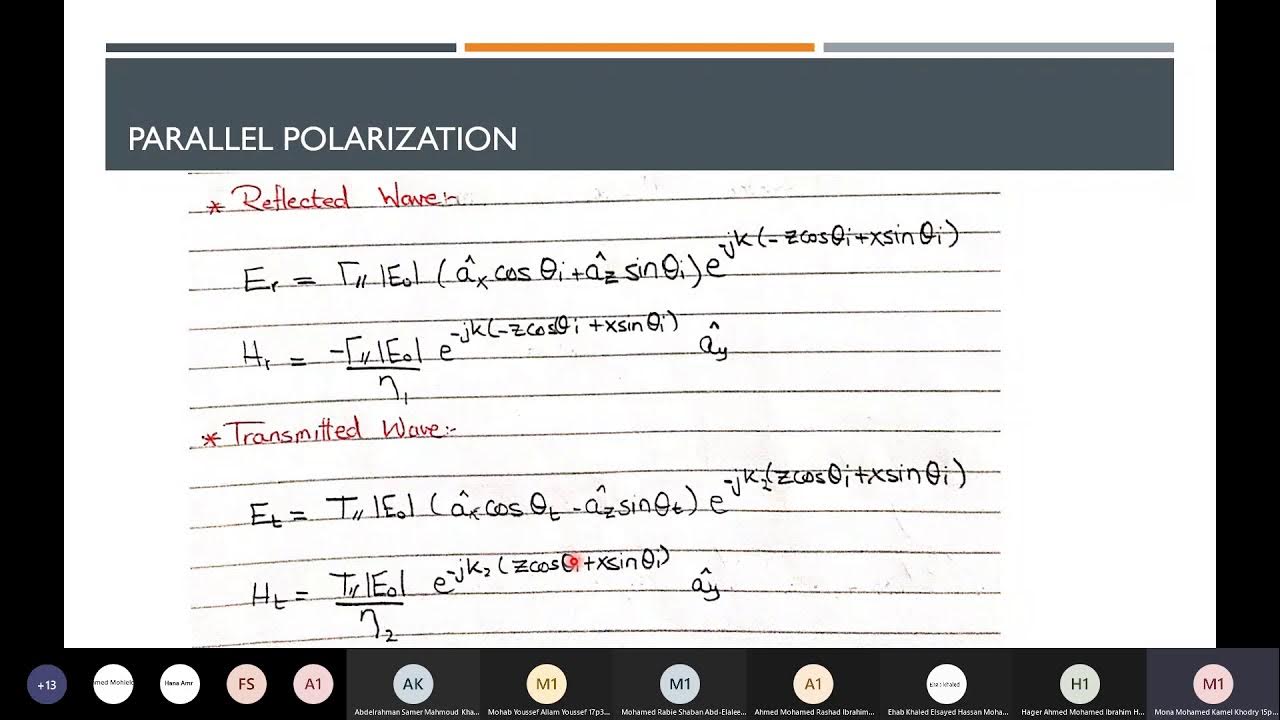 PARALLEL POLARIZATION
* Reflected Wave:-
Er = Γ// |E₀| (âx cos θi + âz sin θi) e^-jk(-zcosθi+xsinθi)
Hr = -Γ// |E₀| / η₁ e^-jk(-zcosθi+xsinθi) ây
* Transmitted Wave:-
Et = T// |E₀| (âx cos θt - âz sin θt) e^-jk₂(zcosθi+xsinθi)
Ht = T// |E₀| / η₂ e^-jk₂(zcosθi+xsinθi) ây
+13
Hana Amr
FS
A1
AK
M1
M1
A1
H1
M1
Abdelrahman Samer Mahmoud Kha...
Mohab Youssef Allam Youssef 17p3...
Mohamed Rabie Shaban Abd-Elalee...
Ahmed Mohamed Rashad Ibrahim...
Ehab Khaled Elsayed Hassan Moha...
Hager Ahmed Mohamed Ibrahim H...
Mona Mohamed Kamel Khodry 15p...